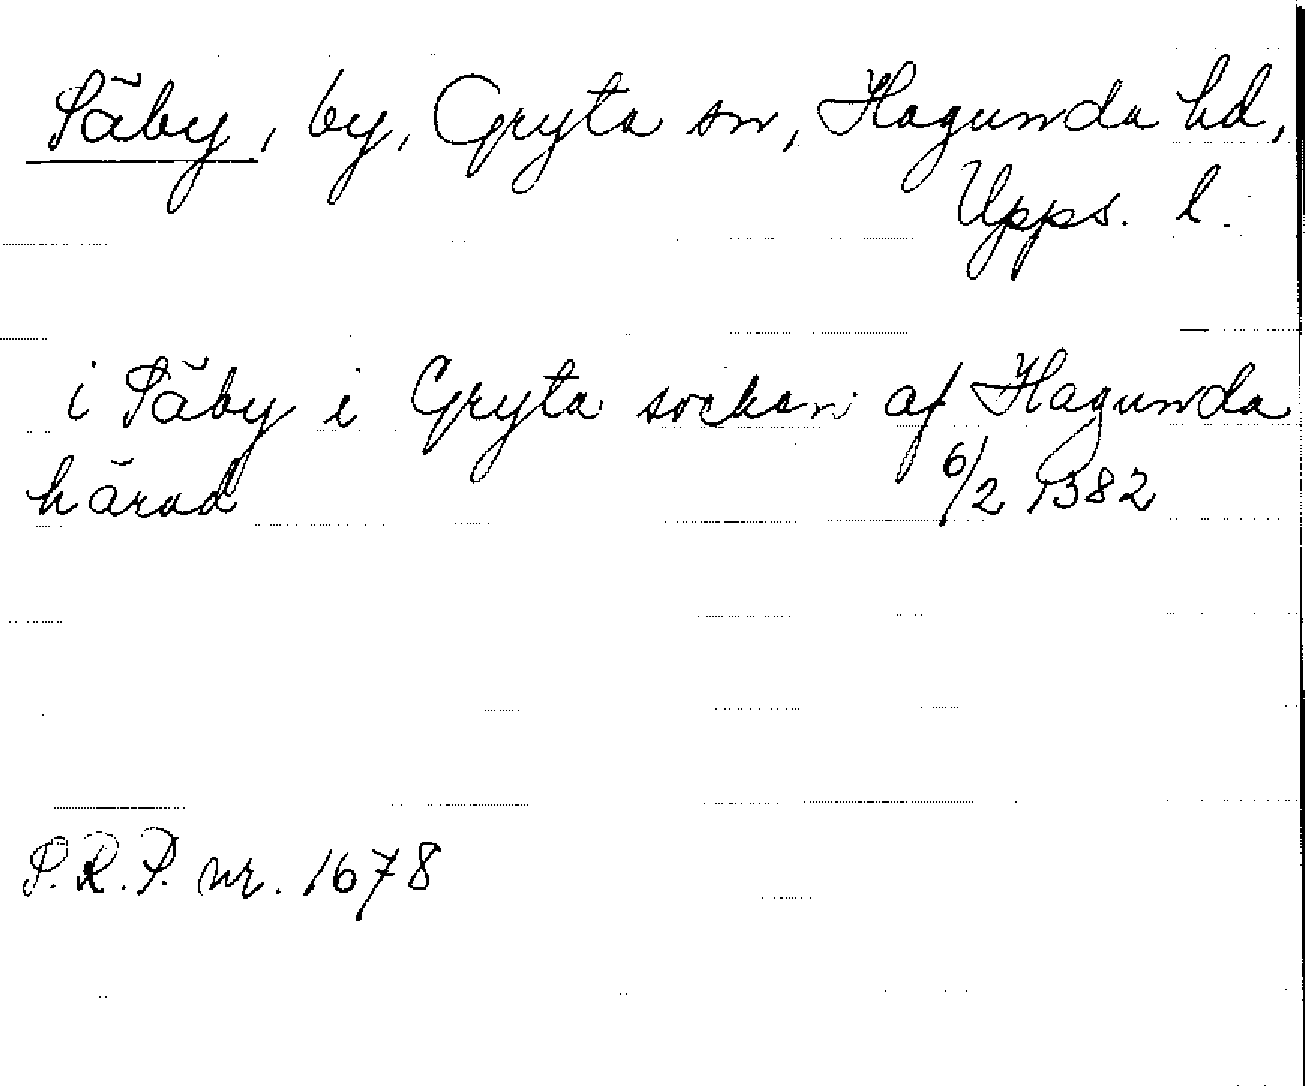 Säby, by, Gryta sn, Hagunda hd,
Upps. l.
i Säby i Gryta sockn af Hagunda
härad 6/2 1382
S.R.P. nr. 1678